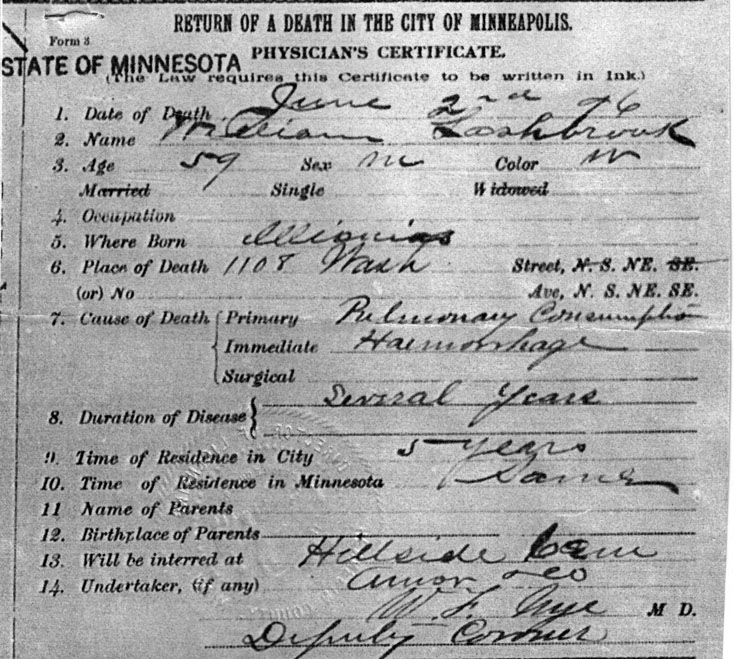 RETURN OF A DEATH IN THE CITY OF MINNEAPOLIS.
Form 3
PHYSICIAN'S CERTIFICATE.
STATE OF MINNESOTA
(The Law requires this Certificate to be written in Ink.)
1. Date of Death June 2nd 96
2. Name William Lashbrook
3. Age 59 Sex M Color W
Married Single Widowed
4. Occupation
5. Where Born
6. Place of Death 1108 Wash Street, N. S. NE. SE.
(or) No Ave, N. S. NE. SE.
7. Cause of Death Primary Pulmonary Consumptio
Immediate Haemorrhage
Surgical
Several Years
8. Duration of Disease
9. Time of Residence in City 5 years
10. Time of Residence in Minnesota Same
11 Name of Parents
12. Birthplace of Parents
13. Will be interred at Hillside Cem
14. Undertaker, (if any) & Co
W. F. Nye M D.
Deputy Coroner